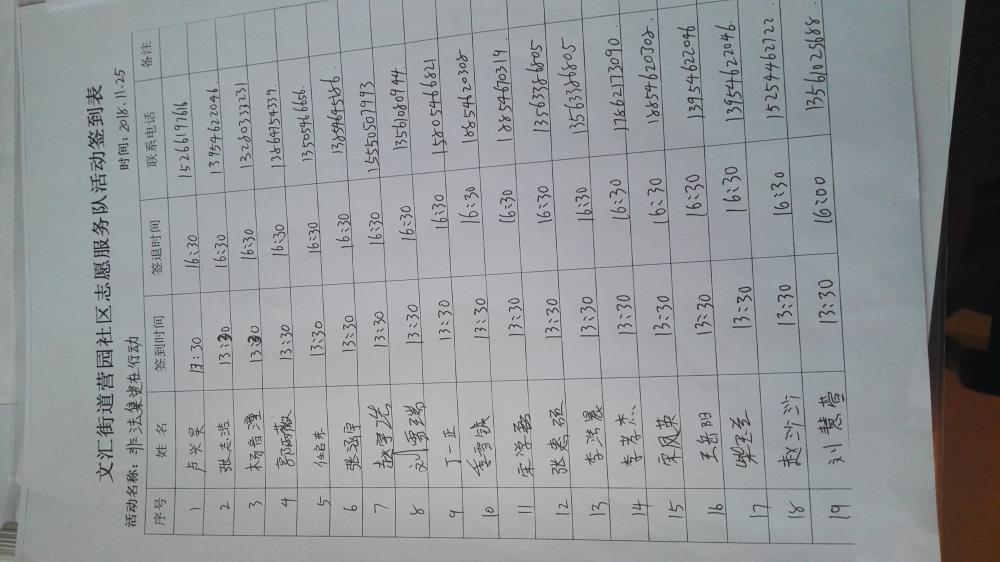 文汇街道营园社区志愿服务队活动签到表
活动名称: 非法集资在行动 时间: 2018.11.25
序号 姓名 签到时间 签退时间 联系电话 备注
1 卢兴昊 13:30 16:30 15266197616
2 张志浩 13:30 16:30 13954622046
3 杨香潼 13:30 16:30 13280333231
4 郭芮薇 13:30 16:30 13864754339
5 任启东 13:30 16:30 13505466656
6 张涵宇 13:30 16:30 13854645186
7 赵宇浩 13:30 16:30 15550507993
8 刘雪瑞 13:30 16:30 13561080944
9 丁一正 13:30 16:30 15805466821
10 李雪钰 13:30 16:30 18854620308
11 宋学磊 13:30 16:30 18854670319
12 张惠硕 13:30 16:30 13563386805
13 李浩晨 13:30 16:30 13563386805
14 李孝杰 13:30 16:30 17862173090
15 宋风英 13:30 16:30 18854620308
16 王岳阳 13:30 16:30 13954622046
17 柴玉兰 13:30 16:30 13954622046
18 赵沙沙 13:30 16:30 15254462722
19 刘慧营 13:30 16:00 13561025688